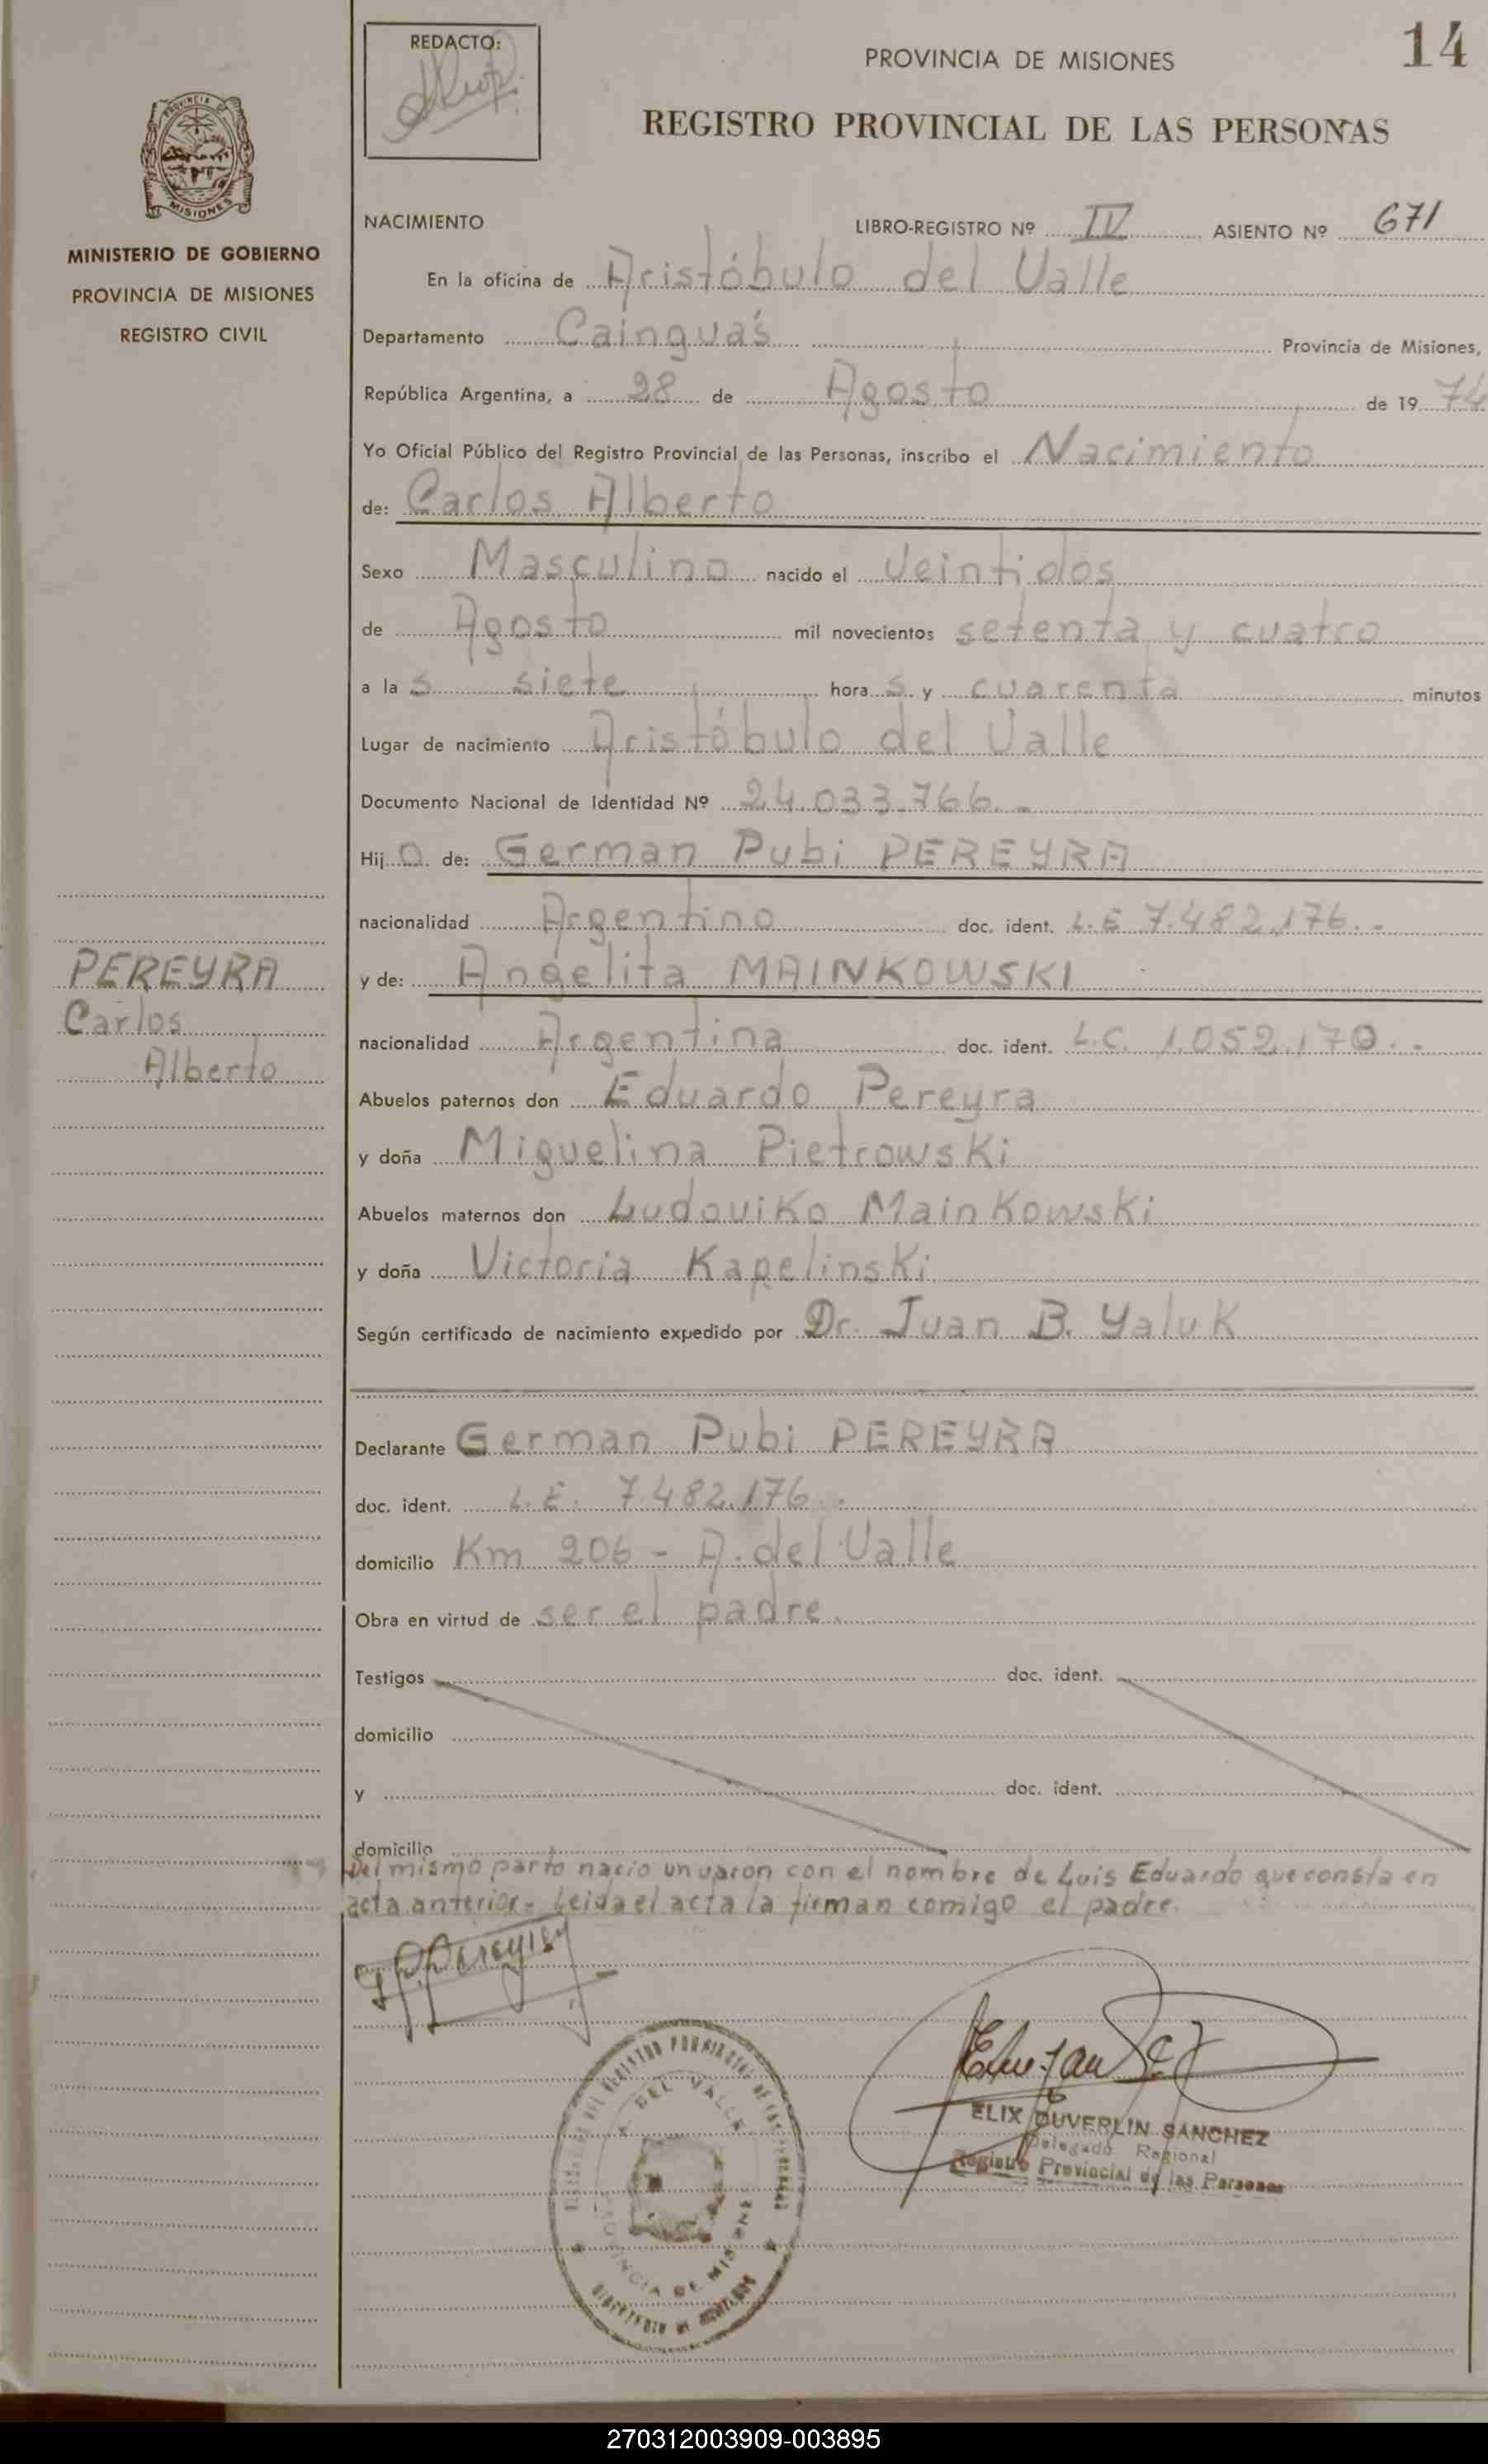 14
REDACTO:
PROVINCIA DE MISIONES
REGISTRO PROVINCIAL DE LAS PERSONAS
MISIONES
MINISTERIO DE GOBIERNO
PROVINCIA DE MISIONES
REGISTRO CIVIL
NACIMIENTO LIBRO-REGISTRO Nº IV ASIENTO Nº 671
En la oficina de Aristóbulo del Valle
Departamento Cainguás Provincia de Misiones,
República Argentina, a 28 de Agosto de 1974
Yo Oficial Público del Registro Provincial de las Personas, inscribo el Nacimiento
de: Carlos Alberto
Sexo Masculino nacido el Veintidos
de Agosto mil novecientos setenta y cuatro
a la s siete hora s y cuarenta minutos
Lugar de nacimiento Aristóbulo del Valle
Documento Nacional de Identidad Nº 24.033.766.-
Hij o de: German Pubi PEREYRA
nacionalidad Argentino doc. ident. L.E 7.482.176.-
PEREYRA
Carlos
Alberto
y de: Angelita MAINKOWSKI
nacionalidad Argentina doc. ident. L.C. 1.052.170.-
Abuelos paternos don Eduardo Pereyra
y doña Miguelina Pietrowski
Abuelos maternos don Ludoviko Mainkowski
y doña Victoria Kapelinski
Según certificado de nacimiento expedido por Dr. Juan B. Yaluk
Declarante German Pubi PEREYRA
doc. ident. L.E. 7.482.176.-
domicilio Km 206 - A. del Valle
Obra en virtud de ser el padre.
Testigos doc. ident.
domicilio
y doc. ident.
domicilio
Del mismo parto nacio un varon con el nombre de Luis Eduardo que consta en
acta anterior.- Leida el acta la firman comigo el padre.
A. DEL VALLE
PROVINCIA DE MISIONES
ELIX DUVERLIN SANCHEZ
Delegado Regional
Registro Provincial de las Personas
270312003909-003895